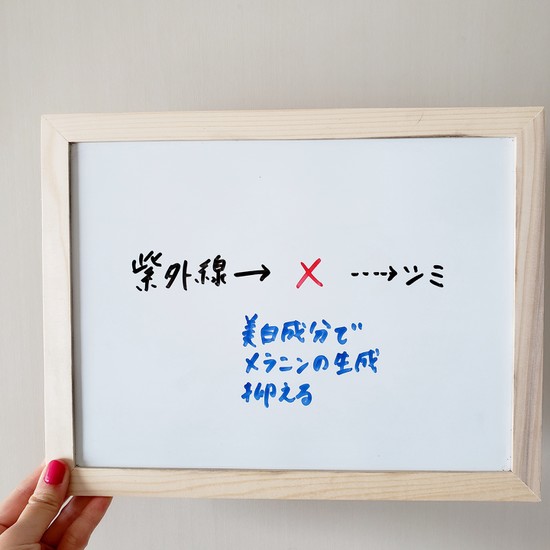 紫外線→ × ····→シミ
美白成分で
メラニンの生成
抑える